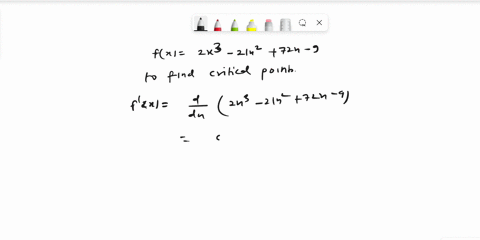 f(x) = 2x³ - 21x² + 72x - 9
to find critical points.
f'(x) = d/dx (2x³ - 21x² + 72x - 9)
=